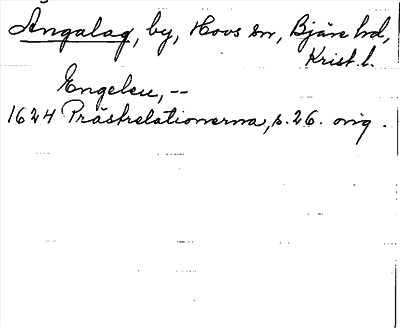 Ängalag, by, Hovs sn, Bjäre hd,
Krist. l.
Engelau, --
1624 Prästrelationerna, s. 26. orig.